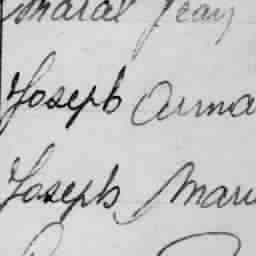 Jean
Joseph Arma
Joseph Mari